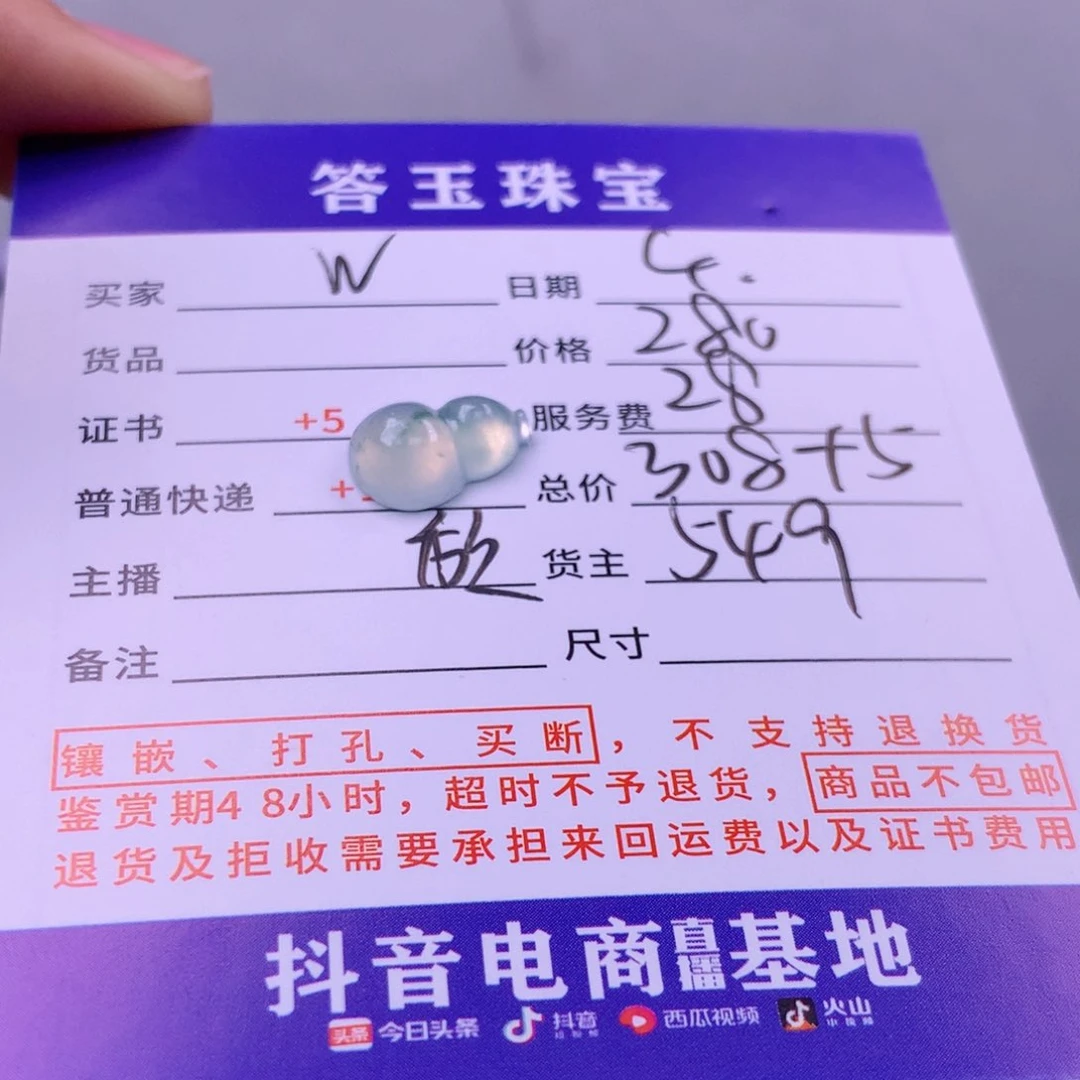 答玉珠宝
买家 W 日期
货品 价格 280
证书 +5 服务费 28
普通快递 + 总价 308+5
主播 货主 549
备注 尺寸
镶嵌、打孔、买断，不支持退换货
鉴赏期48小时，超时不予退货，商品不包邮
退货及拒收需要承担来回运费以及证书费用
抖音电商直播基地
头条 今日头条 抖音 西瓜视频 火山